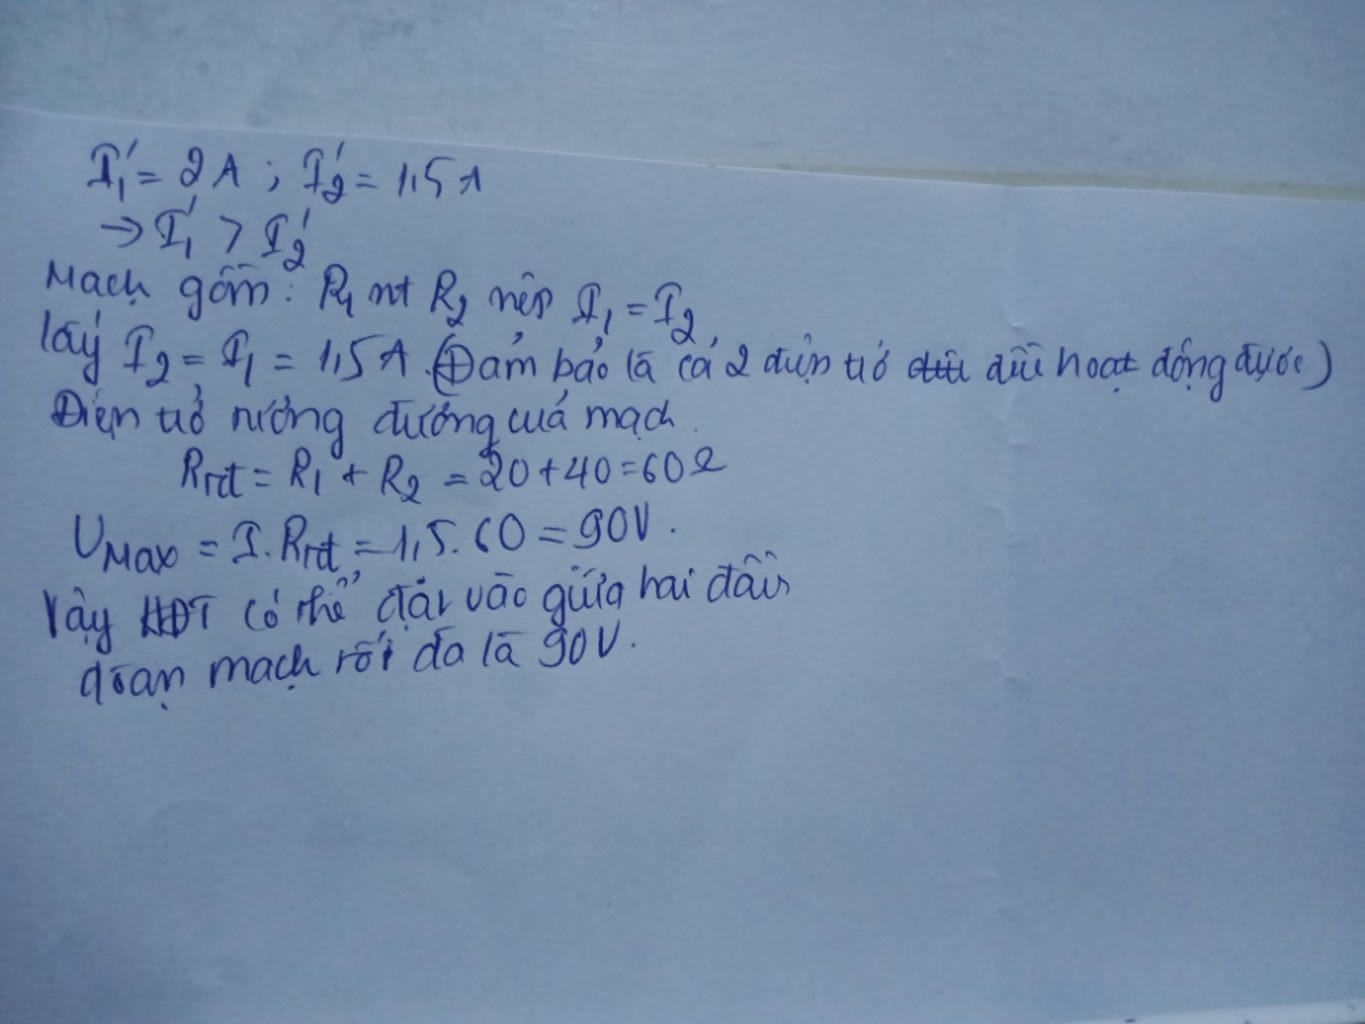 I₁' = 2A ; I₂' = 1,5A
→ I₁' > I₂'
Mạch gồm: R₁ nt R₂ nên I₁ = I₂
lấy I₂ = I₁ = 1,5A. (Đảm bảo là cả 2 điện trở đều hoạt động được)
Điện trở tương đương cuả mạch.
Rtđ = R₁ + R₂ = 20+40=60Ω
UMax = I.Rtđ = 1,5.60 = 90V.
Vậy HĐT có thể đặt vào giữa hai đầu
đoạn mạch tối đa là 90V.